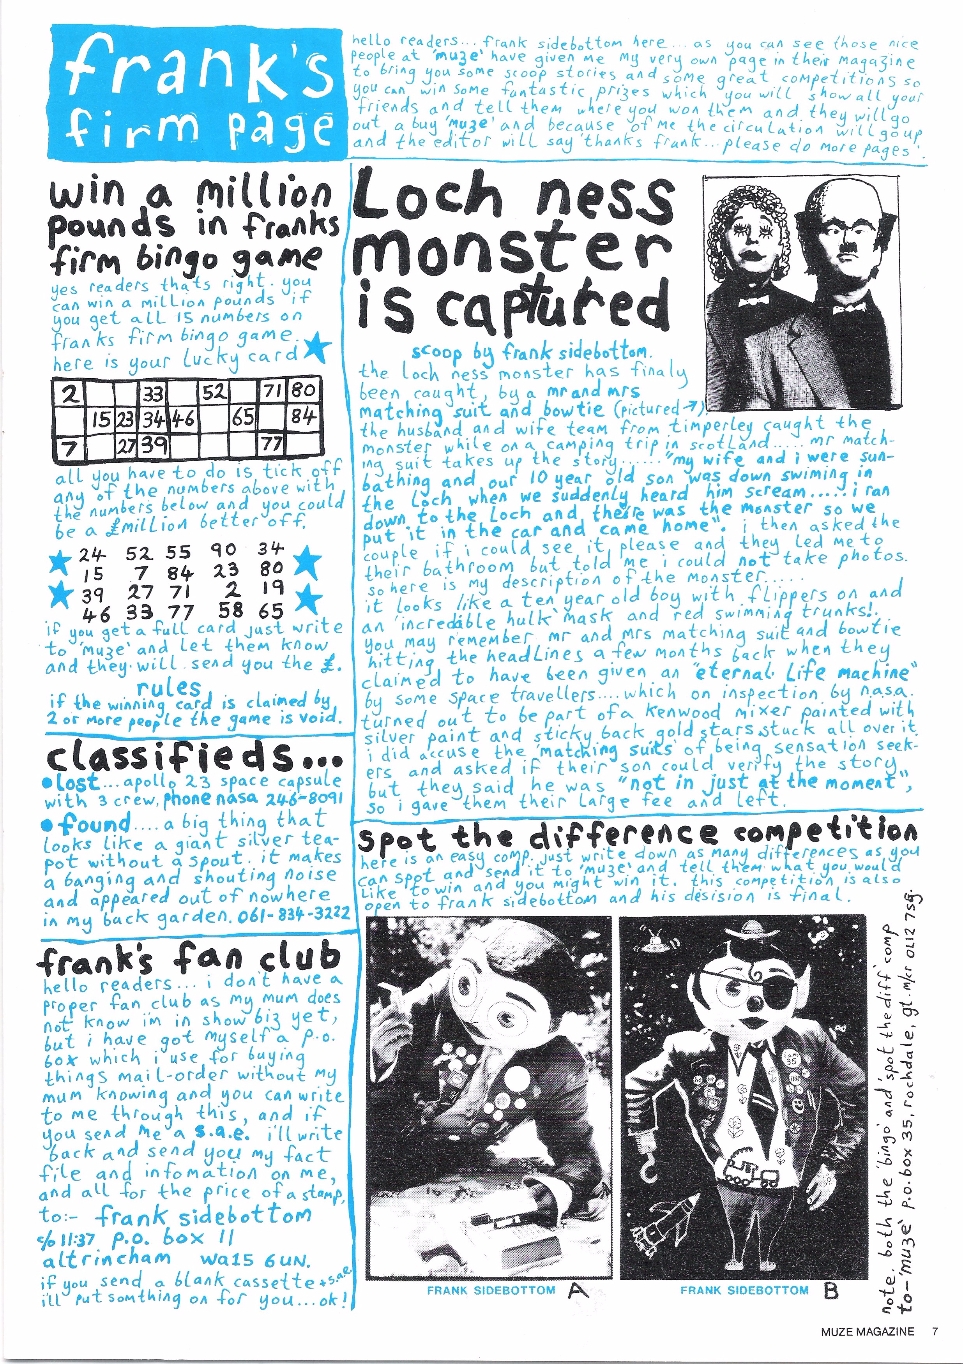 frank's
firm page
hello readers... frank sidebottom here... as you can see those nice
people at 'muze' have given me my very own page in their magazine
to bring you some scoop stories and some great competitions so
you can win some funtastic prizes which you will show all your
friends and tell them where you won them and they will go
out a buy 'muze' and because of me the circulation will go up
and the editor will say 'thanks frank... please do more pages'.
win a million
pounds in franks
firm bingo game
yes readers thats right. you
can win a million pounds if
you get all 15 numbers on
franks firm bingo game.
here is your lucky card
2 33 52 71 80
15 23 34 46 65 84
7 27 39 77
all you have to do is tick off
any of the numbers above with
the numbers below and you could
be a £million better off.
24 52 55 90 34
15 7 84 23 80
39 27 71 2 19
46 33 77 58 65
if you get a full card just write
to 'muze' and let them know
and they will send you the £.
rules
if the winning card is claimed by
2 or more people the game is void.
classifieds...
lost... apollo 23 space capsule
with 3 crew, phone nasa 246-8091
found.... a big thing that
looks like a giant silver tea-
pot without a spout. it makes
a banging and shouting noise
and appeared out of nowhere
in my back garden. 061-834-3222
frank's fan club
hello readers... i don't have a
proper fan club as my mum does
not know i'm in show biz yet,
but i have got myself a p.o.
box which i use for buying
things mail-order without my
mum knowing and you can write
to me through this, and if
you send me a s.a.e. i'll write
back and send you my fact
file and infomation on me,
and all for the price of a stamp,
to:- frank sidebottom
c/o 11:37 p.o. box 11
altrincham wa15 6un.
if you send a blank cassette + s.a.e
i'll put somthing on for you...ok!
Loch ness
monster
is captured
scoop by frank sidebottom.
the loch ness monster has finaly
been caught, by a mr and mrs
matching suit and bowtie (pictured ↗)
the husband and wife team from timperley caught the
monster while on a camping trip in scotland..... mr match-
ing suit takes up the story....... "my wife and i were sun-
bathing and our 10 year old son was down swiming in
the Loch when we suddenly heard him scream..... i ran
down to the Loch and there was the monster so we
put it in the car and came home". i then asked the
couple if i could see it please and they led me to
their bathroom but told me i could not take photos.
so here is my description of the monster.....
it looks like a ten year old boy with flippers on and
an 'incredible hulk' mask and red swimming trunks!.
you may remember mr and mrs matching suit and bowtie
hitting the headlines a few months back when they
claimed to have been given an "eternal life machine"
by some space travellers.... which on inspection by n.a.s.a.
turned out to be part of a kenwood mixer painted with
silver paint and sticky back gold stars stuck all over it.
i did accuse the 'matching suits' of being sensation seek-
ers and asked if their son could verify the story,
but they said he was "not in just at the moment",
so i gave them their large fee and left.
spot the difference competition
here is an easy comp. just write down as many differences as you
can spot and send it to 'muze' and tell them what you would
like to win and you might win it. this competition is also
open to frank sidebottom and his desision is final.
FRANK SIDEBOTTOM A
FRANK SIDEBOTTOM B
note. both the 'bingo' and 'spot the diff' comp
to-'muze' p.o.box 35, rochdale, gt. m/cr OL12 7sg.
MUZE MAGAZINE 7